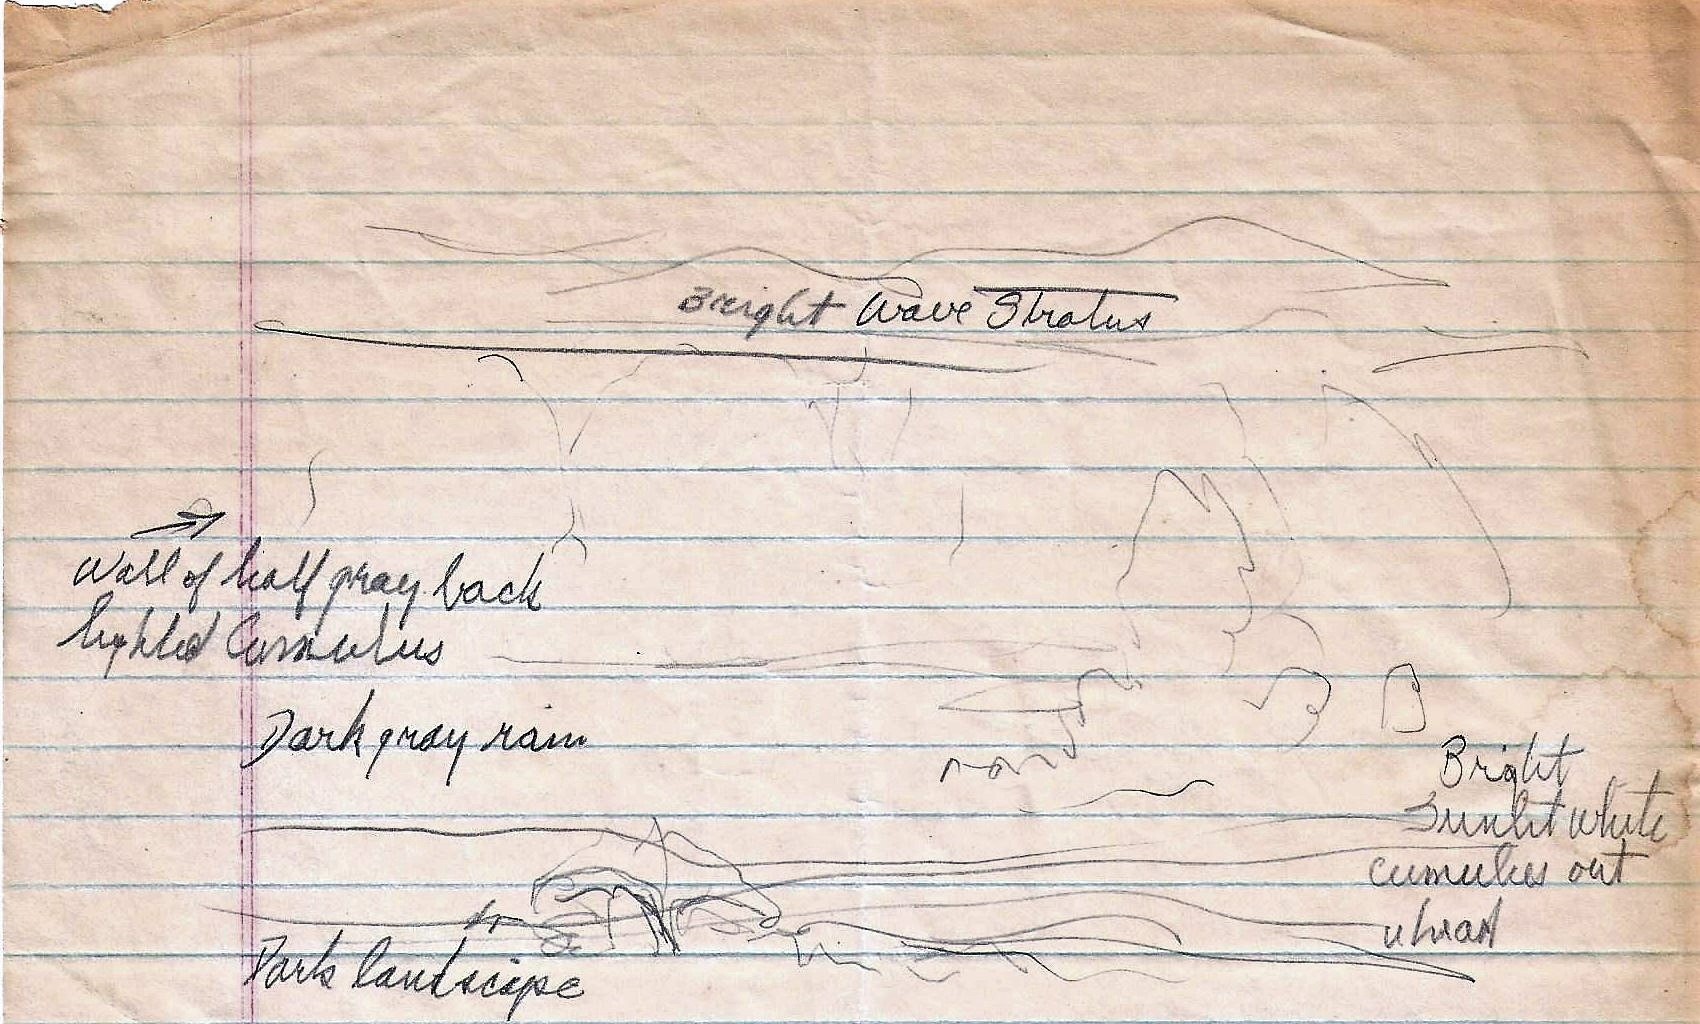 Bright Wave Stratus
Wall of half gray back
lighted Cumulus
Dark gray rain
Bright
Sunlit white
cumulus out
ahead
Dark landscape